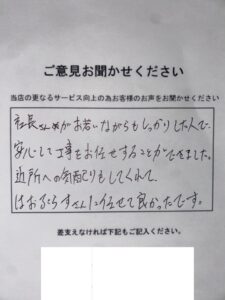 ご意見お聞かせください
当店の更なるサービス向上の為お客様のお声をお聞かせください
社長さんがお若いながらもしっかりした人で、
安心して工事をお任せすることができました。
近所への気配りもしてくれて、
さんに任せて良かったです。
差支えなければ下記もご記入ください。